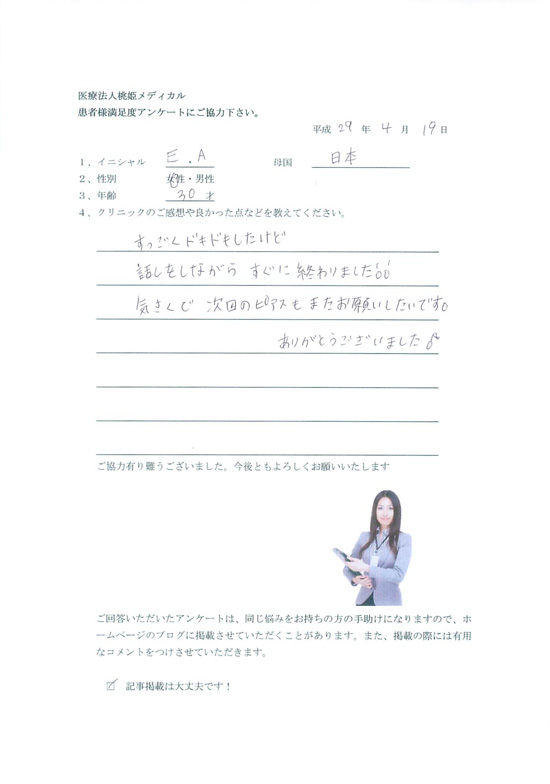 医療法人桃姫メディカル
患者様満足度アンケートにご協力下さい。
平成 29 年 4 月 19 日
1、イニシャル E.A 母国 日本
2、性別 女性・男性
3、年齢 30 才
4、クリニックのご感想や良かった点などを教えてください。
すっごくドキドキもしたけど
話しをしながら すぐに終わりました!!
気さくで 次回のピアスも またお願いしたいです。
ありがとうございました♪
ご協力有り難うございました。今後ともよろしくお願いいたします
ご回答いただいたアンケートは、同じ悩みをお持ちの方の手助けになりますので、ホ
ームページのブログに掲載させていただくことがあります。また、掲載の際には有用
なコメントをつけさせていただきます。
☑ 記事掲載は大丈夫です！